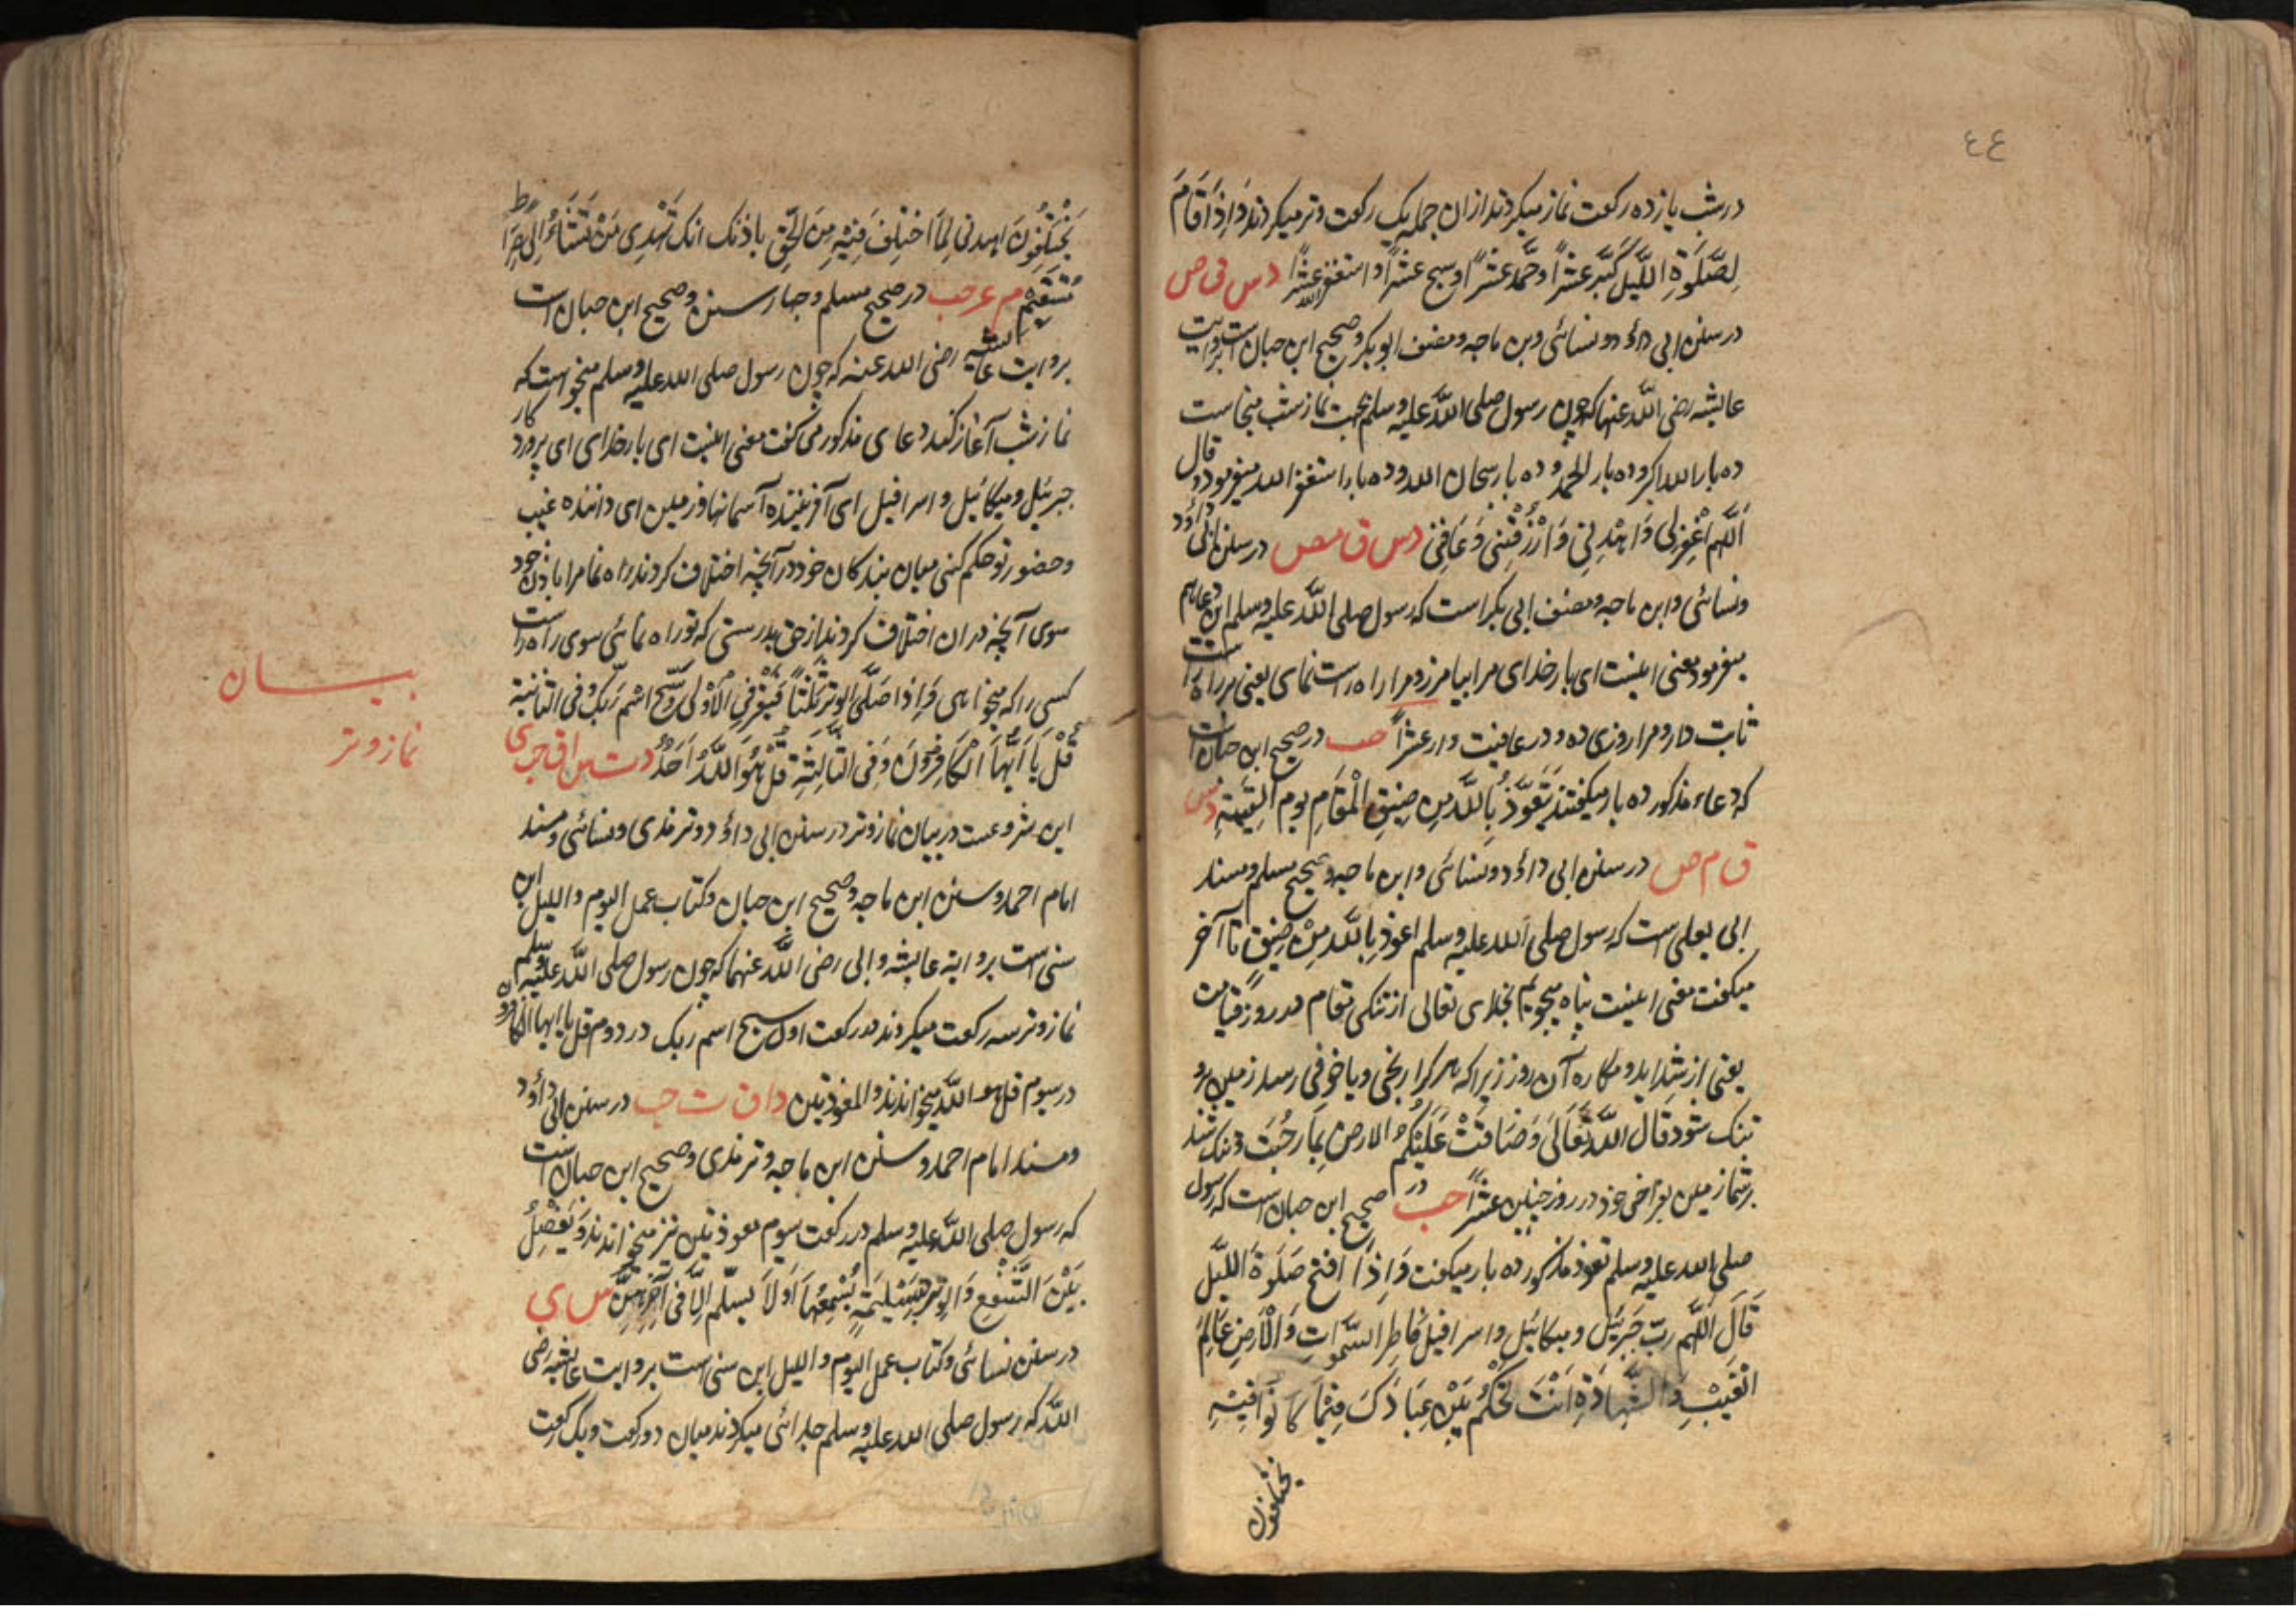 ٤٤
در شب یازده رکعت نماز میکردند ازان جمله یک رکعت وتر میکردند وَاِذَا قَامَ
لِصَلٰوةِ اللَّیْلِ کَبَّرَ عَشْرًا وَحَمَّدَ عَشْرًا وسبح عشرًا و استغفر الله عشرًا د س ق ص
در سنن ابی داؤد و نسائی وبن ماجه ومصنف ابو بکر وصحیح ابن حبان است بروایت
عایشه رضی اللّٰه عنها که چون رسول صلی اللّٰه علیه وسلم بجهت نماز شب میخاست
ده بار الله اکبر و ده بار الحمد و ده بار سبحان الله و ده بار استغفر الله میفرمود و قال
اَللّٰهُمَّ اغْفِرْلِی وَاهْدِنِی وَارْزُقْنِی وَعَافِنِی د س ق مص در سنن ابی داؤد
ونسائی وابن ماجه ومصنف ابی بکر است که رسول صلی اللّٰه علیه وسلم این دعا هم
میفرمود معنی اینست ای بار خدای مرا بیامرز و مرا راه راست نمای یعنی بر راه راست
ثابت دار و مرا روزی ده و در عافیت دار عشرًا حب در صحیح ابن حبان است
که دعاء مذکور ده بار میگفتند یَتَعَوَّذُ بِاللّٰهِ مِن ضِیْقِ الْمَقَامِ یوم القِیٰمَةِ د س
ق م ص در سنن ابی داؤد و نسائی وابن ماجه وصحیح مسلم ومسند
ابی یعلی است که رسول صلی الله علیه وسلم اعوذ بِاللّٰهِ مِنْ ضِیْقِ تا آخر
میگفت معنی اینست پناه میجویم بخدای تعالی از تنگی مقام در روز قیامت
یعنی از شداید و مکاره آن روز زیرا که هر کرا رنجی و یا خوفی رسد زمین برو
تنگ شود قَالَ اللّٰهُ تَعَالٰی وَضَاقَتْ عَلَیْکُمُ الارض بِمَا رَحُبَت و تنگ شد
بر شما زمین بفراخی خود در روز حنین عشرًا حب در صحیح ابن حبان است که رسول
صلی الله علیه وسلم تعوذ مذکور ده بار میگفت وَاِذَا افتح صَلٰوةَ اللَّیْل
قَالَ اللّٰهُمَّ رَبَّ جَبْرَئِیْل ومیکائیل واسرافیل فَاطِرَ السَّمٰوَاتِ وَالْاَرْضِ عَالِمَ
الْغَیْبِ وَالشَّهَادَةِ اَنْتَ تَحْکُمُ بَیْنَ عِبَادِکَ فِیْمَا کَانُوْا فِیْهِ
یختلفون
یَخْتَلِفُوْنَ اهدنی لِمَا اخْتُلِفَ فِیْهِ مِنَ الْحَقِّ باذنک انک تَهْدِی مَنْ تَشَاءُ اِلٰی صِرَاطٍ
مُسْتَقِیْمٍ م عه حب در صحیح مسلم وچهار سنن وصحیح ابن حبان است
بروایت عایشه رضی الله عنه که چون رسول صلی الله علیه وسلم میخواست که
نماز شب آغاز کند دعای مذکور می گفت معنی اینست ای بار خدای ای پروردکار
جبرئیل ومیکائیل و اسرافیل ای آفریننده آسمانها و زمین ای داننده غیب
وحضور تو حکم کنی میان بندکان خود در آنچه اختلاف کردند راه نما مرا باذن خود
سوی آنچه دران اختلاف کردند از حق بدرستی که تو راه نمائی سوی راه راست
کسی را که میخواهی وَاِذَا صَلَّی الوِتْرَ ثَلٰثًا فَیَقْرَءُ فِی الْاُوْلٰی سَبِّحِ اسْمَ رَبِّکَ وفی الثانیة
قُلْ یَا اَیُّهَا الْکَافِرُوْنَ وَفِی الثَّالِثَةِ قُلْ هُوَ اللّٰهُ اَحَدٌ د ت س ا ق حب ی
بیان
نماز وتر
این شروعست در بیان نماز وتر در سنن ابی داؤد و ترمذی ونسائی ومسند
امام احمد وسنن ابن ماجه وصحیح ابن حبان وکتاب عمل الیوم واللیل ابن
سنی است بروایة عایشه و ابی رضی اللّٰه عنهما که چون رسول صلی اللّٰه علیه وسلم
نماز وتر سه رکعت میکردند در رکعت اول سبح اسم ربک در دوم قل یا ایها الکافرون
در سیوم قل هو اللّٰه میخواندند والمعوذتین د ا ق ت حب در سنن ابی داؤد
ومسند امام احمد و سنن ابن ماجه و ترمذی وصحیح ابن حبان است
که رسول صلی اللّٰه علیه وسلم در رکعت سیوم معوذتین نیز میخواندند وَیَفْصِلُ
بَیْنَ الشَّفْعِ وَالوِتْرِ بِتَسْلِیْمَةٍ یُسْمِعُهَا اَوْ لَا یسلّم اِلَّا فِی آخِرِهِنَّ س ی
در سنن نسائی وکتاب عمل الیوم واللیل ابن سنی است بروایت عایشه رضی
اللّٰه که رسول صلی الله علیه وسلم جدائی میکردند میان دو رکعت و یک رکعت